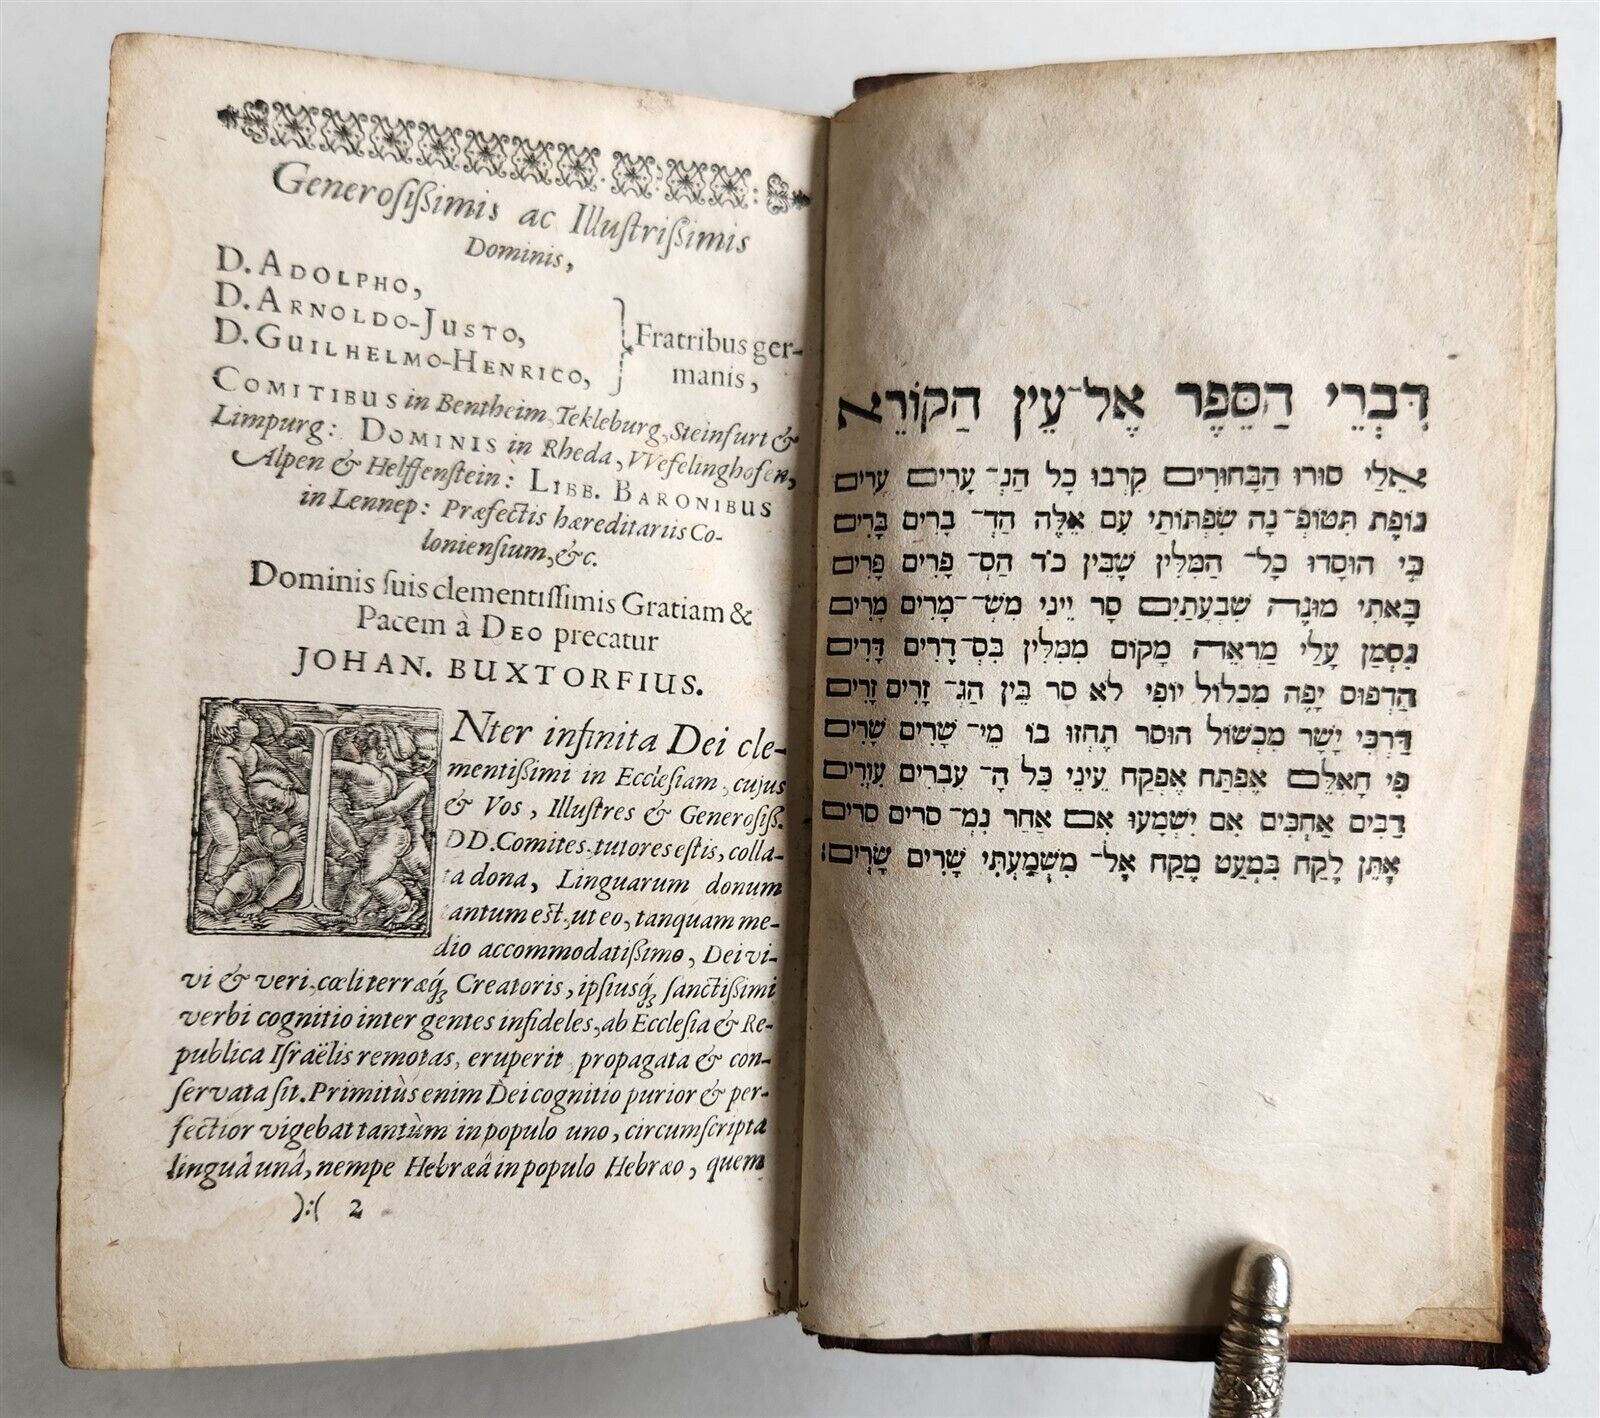 Generosißimis ac Illustrißimis
Dominis,
D. ADOLPHO,
D. ARNOLDO-JUSTO,
D. GUILHELMO-HENRICO,
Fratribus ger-
manis,
COMITIBUS in Bentheim, Tekleburg, Steinfurt &
Limpurg: DOMINIS in Rheda, VVefelinghofen,
Alpen & Helffenstein: LIBB. BARONIBUS
in Lennep: Præfectis hæreditariis Co-
loniensium, &c.
Dominis suis clementissimis Gratiam &
Pacem à DEO precatur
JOHAN. BUXTORFIUS.
INter infinita Dei cle-
mentißimi in Ecclesiam, cujus
& Vos, Illustres & Generosiß.
DD. Comites, tutores estis, colla-
ta dona, Linguarum donum
tantum est, ut eo, tanquam me-
dio accommodatißimo, Dei vi-
vi & veri, cœli terræq́; Creatoris, ipsiusq́; sanctißimi
verbi cognitio inter gentes infideles, ab Ecclesia & Re-
publica Israëlis remotas, eruperit propagata & con-
servata sit. Primitùs enim Dei cognitio purior & per-
fectior vigebat tantùm in populo uno, circumscripta
linguâ unâ, nempe Hebræâ in populo Hebræo, quem
):( 2
דִּבְרֵי הַסֵּפֶר אֶל־עֵין הַקּוֹרֵא
אֵלַי סוּרוּ הַבָּחוּרִים קִרְבוּ כָל הַנְּ־ עָרִים עֵרִים
נוֹפֶת תִּטּוֹפְ־נָה שִׂפְתוֹתַי עִם אֵלֶּה הַדְּ־ בָרִים בָּרִים
כִּי הוּסָדוּ כָל־ הַמִּלִּין שֶׁבֵּין כֹּל הַסְּ־ פָרִים פָּרִים
בָּאתִי מוּגֶּה שִׁבְעָתַיִם סָר יֵינִי מִשְּׁ־ מָרִים מָרִים
נִסְמַן עָלַי מַרְאֵה מָקוֹם מִמִּלִּין בִּסְ־דָרִים דָּרִים
הַדְּפוּס יָפֶה מִכְלוֹל יוֹפִי לֹא סָר בֵּין הַגְּ־ זָרִים זָרִים
דַּרְכִּי יָשָׁר מִכְשׁוֹל הוּסַר תֶּחֱזוּ בוֹ מֵי־ שָׁרִים שָׁרִים
פִּי אִלֵּם אֶפְתַּח אֶפְקַח עֵינֵי כָל הָ־ עִבְרִים עִוְרִים
רַבִּים אַחְכִּים אִם יִשְׁמָעוּ אִם אַחַר נִמְ־ סרִים סרִים
אֶתֵּן לֶקַח בִּמְעַט מֶקַח אֶל־ מִשְׁמַעְתִּי שָׂרִים שָׂרִים׃